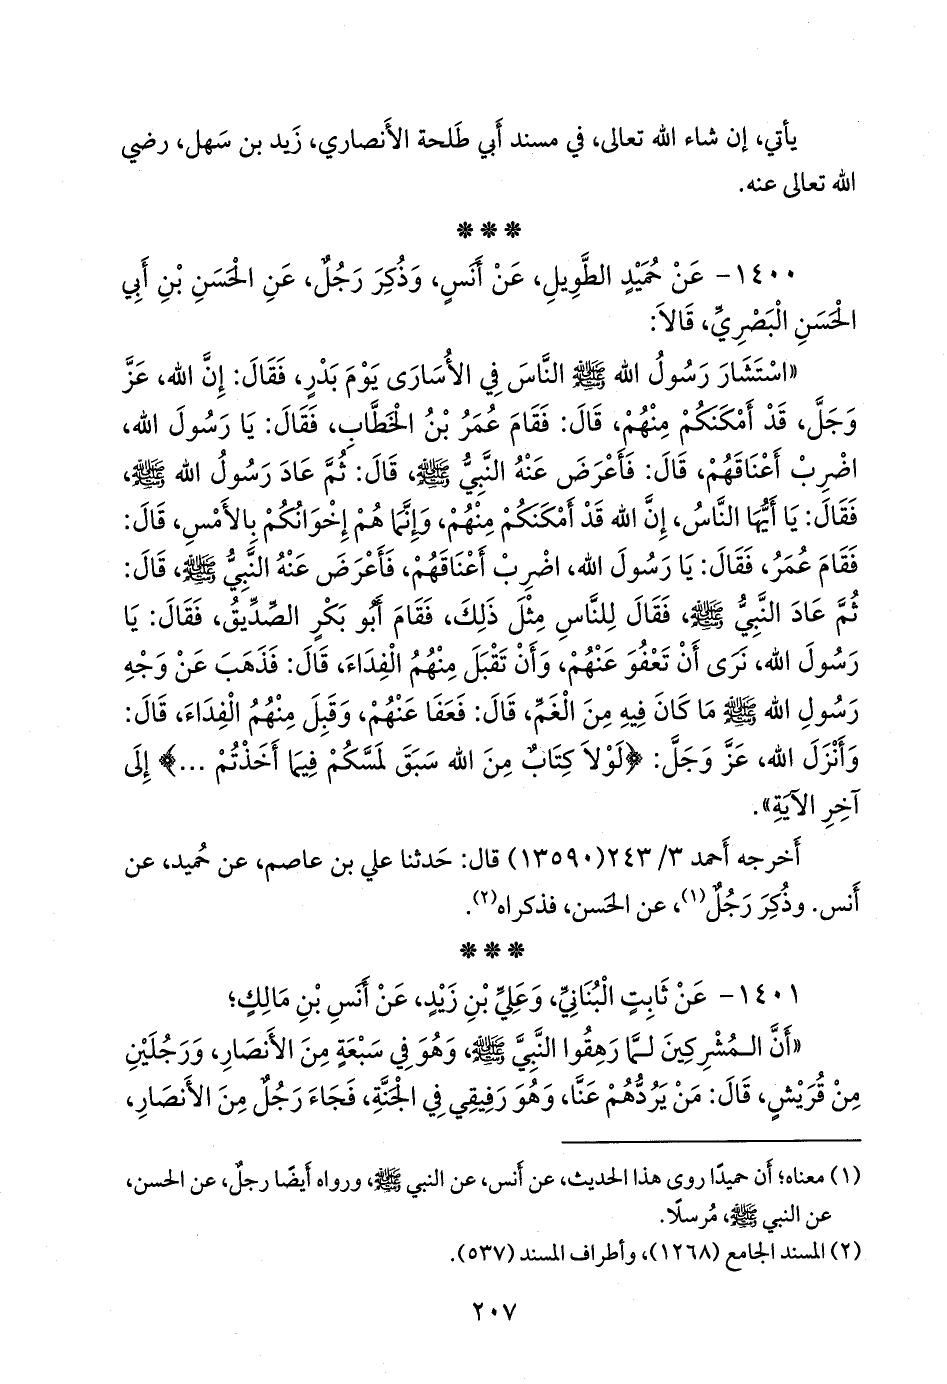 يأتي، إن شاء الله تعالى، في مسند أَبي طَلحة الأَنصاري، زَيد بن سَهل، رضي
الله تعالى عنه.
***
١٤٠٠- عَنْ حُمَيْدٍ الطَّوِيلِ، عَنْ أَنَسٍ، وَذُكِرَ رَجُلٌ، عَنِ الْحَسَنِ بْنِ أَبِي
الْحَسَنِ الْبَصْرِيِّ، قَالاَ:
«اسْتَشَارَ رَسُولُ الله ﷺ النَّاسَ فِي الأُسَارَى يَوْمَ بَدْرٍ، فَقَالَ: إِنَّ الله، عَزَّ
وَجَلَّ، قَدْ أَمْكَنَكُمْ مِنْهُمْ، قَالَ: فَقَامَ عُمَرُ بْنُ الْخَطَّابِ، فَقَالَ: يَا رَسُولَ الله،
اضْرِبْ أَعْنَاقَهُمْ، قَالَ: فَأَعْرَضَ عَنْهُ النَّبِيُّ ﷺ، قَالَ: ثُمَّ عَادَ رَسُولُ الله ﷺ،
فَقَالَ: يَا أَيُّهَا النَّاسُ، إِنَّ الله قَدْ أَمْكَنَكُمْ مِنْهُمْ، وَإِنَّمَا هُمْ إِخْوَانُكُمْ بِالأَمْسِ، قَالَ:
فَقَامَ عُمَرُ، فَقَالَ: يَا رَسُولَ الله، اضْرِبْ أَعْنَاقَهُمْ، فَأَعْرَضَ عَنْهُ النَّبِيُّ ﷺ، قَالَ:
ثُمَّ عَادَ النَّبِيُّ ﷺ، فَقَالَ لِلنَّاسِ مِثْلَ ذَلِكَ، فَقَامَ أَبُو بَكْرٍ الصِّدِّيقُ، فَقَالَ: يَا
رَسُولَ الله، نَرَى أَنْ تَعْفُوَ عَنْهُمْ، وَأَنْ تَقْبَلَ مِنْهُمُ الْفِدَاءَ، قَالَ: فَذَهَبَ عَنْ وَجْهِ
رَسُولِ الله ﷺ مَا كَانَ فِيهِ مِنَ الْغَمِّ، قَالَ: فَعَفَا عَنْهُمْ، وَقَبِلَ مِنْهُمُ الْفِدَاءَ، قَالَ:
وَأَنْزَلَ الله، عَزَّ وَجَلَّ: ﴿لَوْلاَ كِتَابٌ مِنَ الله سَبَقَ لَمَسَّكُمْ فِيمَا أَخَذْتُمْ ...﴾ إِلَى
آخِرِ الآيَةِ».
أَخرجه أَحمد ٣/ ٢٤٣(١٣٥٩٠) قال: حَدثنا علي بن عاصم، عن حُميد، عن
أَنس. وذُكِرَ رَجُلٌ(١)، عن الحَسن، فذكراه(٢).
***
١٤٠١- عَنْ ثَابِتٍ الْبُنَانِيِّ، وَعَلِيِّ بْنِ زَيْدٍ، عَنْ أَنَسِ بْنِ مَالِكٍ؛
«أَنَّ الـمُشْرِكِينَ لـمَّا رَهِقُوا النَّبِيَّ ﷺ، وَهُوَ فِي سَبْعَةٍ مِنَ الأَنصَارِ، وَرَجُلَيْنِ
مِنْ قُرَيْشٍ، قَالَ: مَنْ يَرُدُّهُمْ عَنَّا، وَهُوَ رَفِيقِي فِي الْجَنَّةِ، فَجَاءَ رَجُلٌ مِنَ الأَنصَارِ،
(١) معناه؛ أَن حميدًا روى هذا الحديث، عن أَنس، عن النبي ﷺ، ورواه أَيضًا رجلٌ، عن الحسن،
عن النبي ﷺ، مُرسلًا.
(٢) المسند الجامع (١٢٦٨)، وأطراف المسند (٥٣٧).
٢٠٧